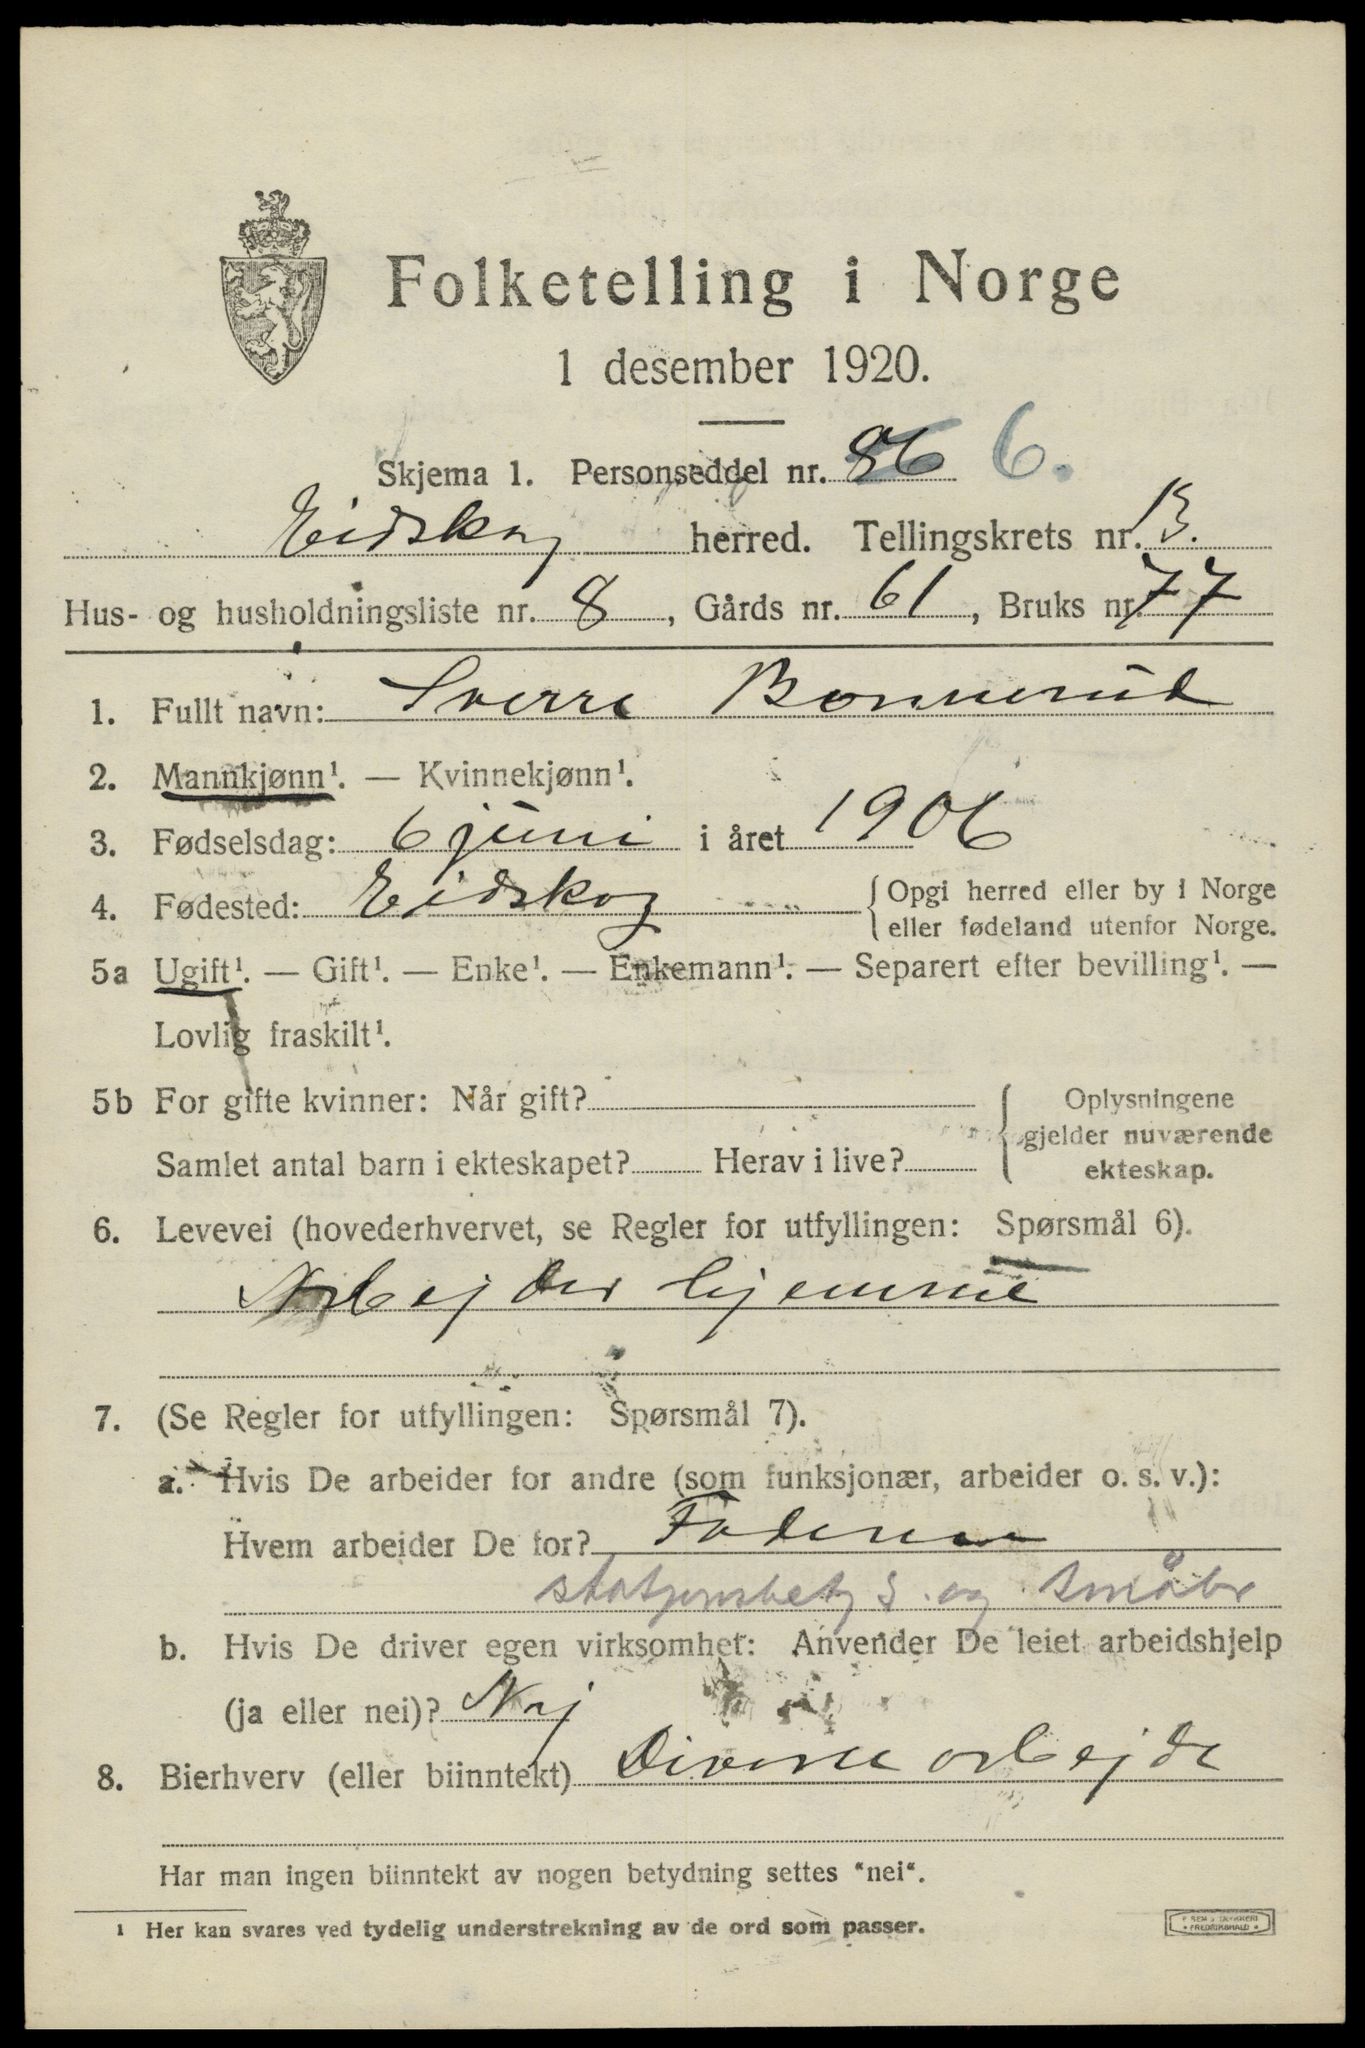 Folketelling i Norge
1 desember 1920.
Skjema 1. Personseddel nr. 86 6.
Eidskog herred. Tellingskrets nr. 13.
Hus- og husholdningsliste nr. 8, Gårds nr. 61, Bruks nr. 77
1. Fullt navn: Sverre Bonnerud
2. Mannkjønn¹. — Kvinnekjønn¹.
3. Fødselsdag: 6 juni i året 1906
4. Fødested: Eidskog { Opgi herred eller by i Norge
eller fødeland utenfor Norge.
5a Ugift¹. — Gift¹. — Enke¹. — Enkemann¹. — Separert efter bevilling¹. —
Lovlig fraskilt¹.
5b For gifte kvinner: Når gift? { Oplysningene
gjelder nuværende
Samlet antal barn i ekteskapet? Herav i live?
ekteskap.
6. Levevei (hovederhvervet, se Regler for utfyllingen: Spørsmål 6).
Arbejder hjemme
7. (Se Regler for utfyllingen: Spørsmål 7).
a. Hvis De arbeider for andre (som funksjonær, arbeider o. s. v.):
Hvem arbeider De for? Faderen
stasjonsbetj. og småbr
b. Hvis De driver egen virksomhet: Anvender De leiet arbeidshjelp
(ja eller nei)? Nej
8. Bierhverv (eller biinntekt) Diverse arbejde
Har man ingen biinntekt av nogen betydning settes "nei".
¹ Her kan svares ved tydelig understrekning av de ord som passer.